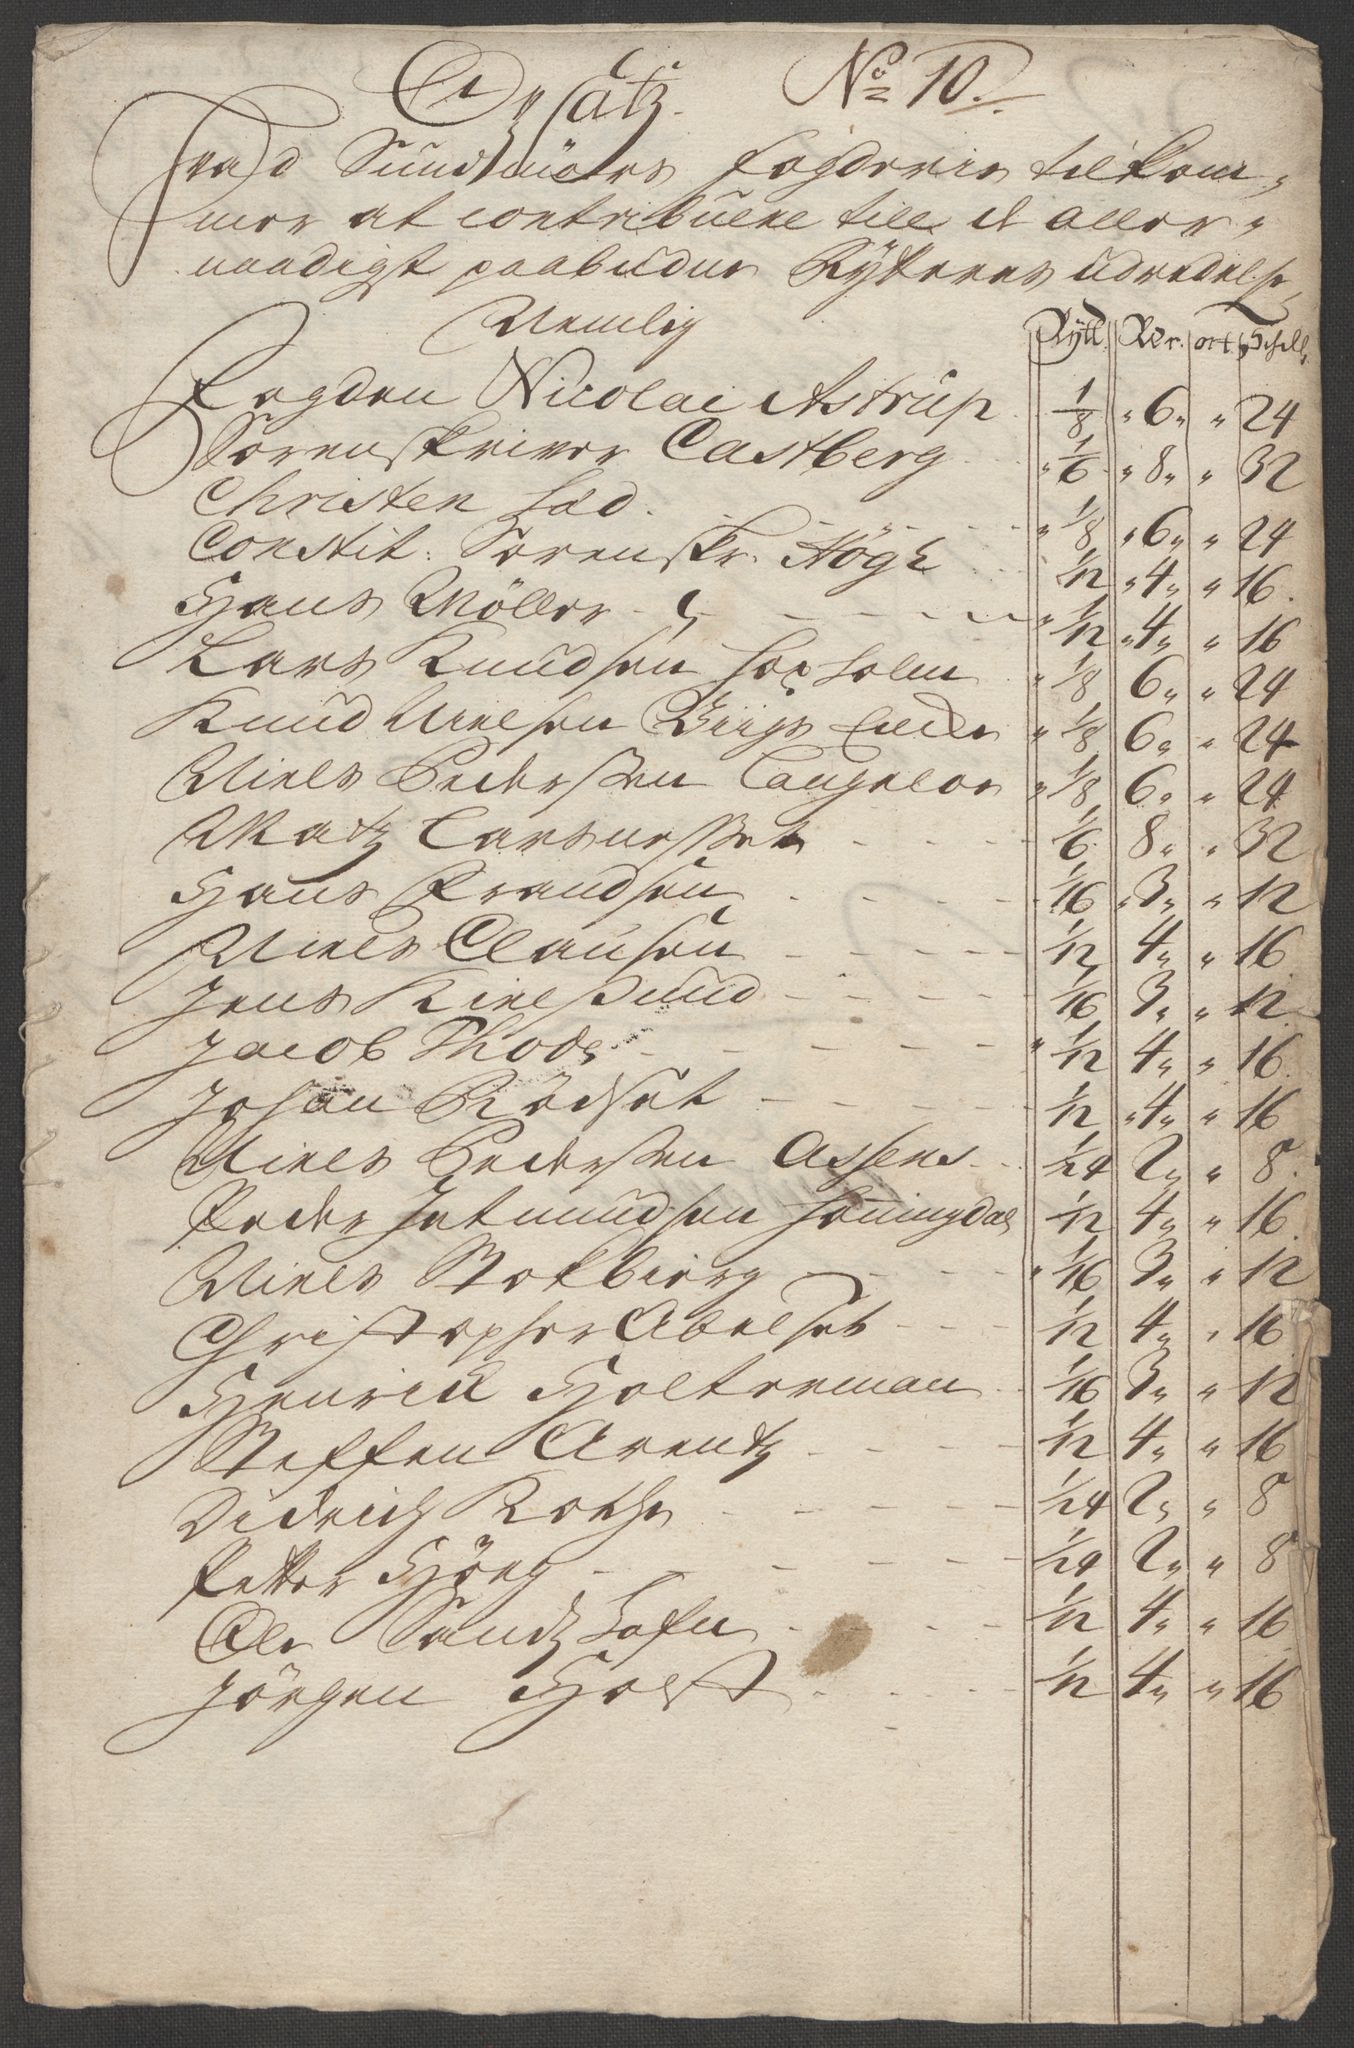 Ansatz. No 10.
Hvad Sundmøers fogderie tilkom-
mer at contribuere till d aller-
naadigst paabudne Rÿtteres udredelse
Nemlig
Rÿtt. Rdr. ort. Schill.
Fogden Nicolai Astrup 1/8 " 6 " " 24
Sorenskriver Castberg " 1/6 " 8 " " 32
Christen " 1/8 " 6 " " 24
Constit: Sorenskr. Høgh 1/12 " 4 " " 16
Hans Möller " 1/12 " 4 " " 16
Lars Knudsen " 1/8 6 " " 24
Knud Nielsen " 1/8 6 " " 24
Niels Pedersen " 1/8 6 " " 24
Matz Larsnesset 1/6 8 " " 32
Hans Frandsen 1/16 " 3 " " 12
Niels Clausen 1/12 4 " " 16
Jens Kielsund 1/16 3 " " 12
Jacob Thode " 1/12 4 " " 16
Johan Rödset 1/12 " 4 " " 16
Niels Pedersen Assens 1/24 2 " " 8
Peder Jetmundsen Honningdal 1/12 4 " " 16
Niels Stokbierg " 1/16 3 " " 12
Christopher Abelset 1/12 4 " " 16
Henrich Holterman 1/16 3 " " 12
Steffen Arentz 1/12 4 " " 16
Didrich Rothe 1/24 2 " " 8
Petter Hjörg 1/24 2 " " 8
Ole Sandshafn 1/12 4 " " 16
Jörgen Holst 1/12 4 " " 16